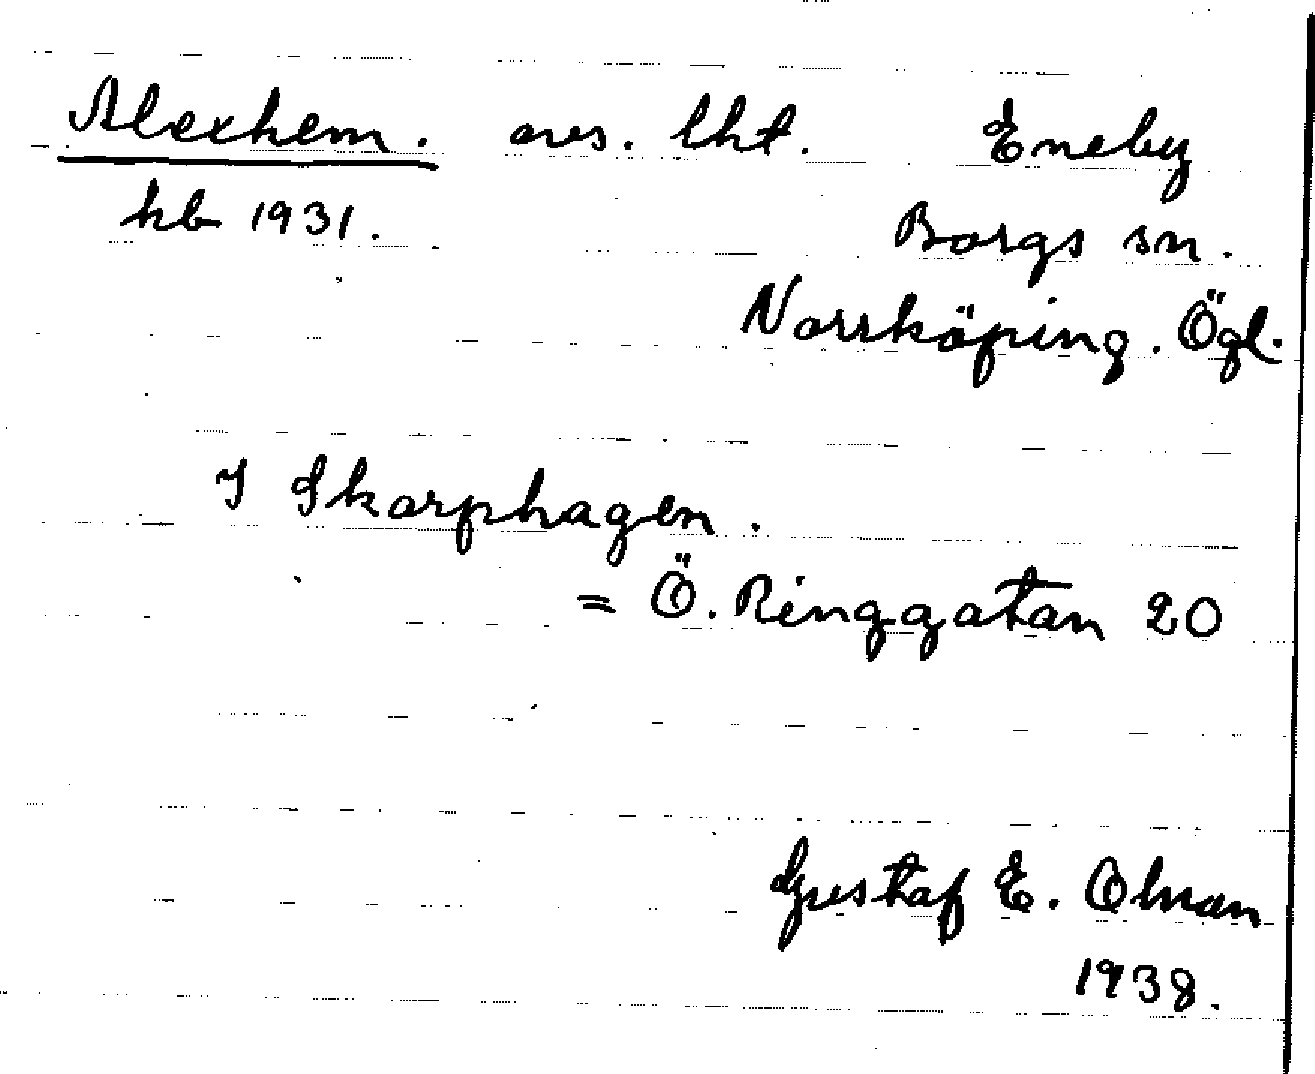 Alexhem. avs. lht. Eneby
kb 1931. Borgs sn.
Norrköping. Ögl.
I Skarphagen.
= Ö. Ringgatan 20
Gustaf E. Olman
1938.